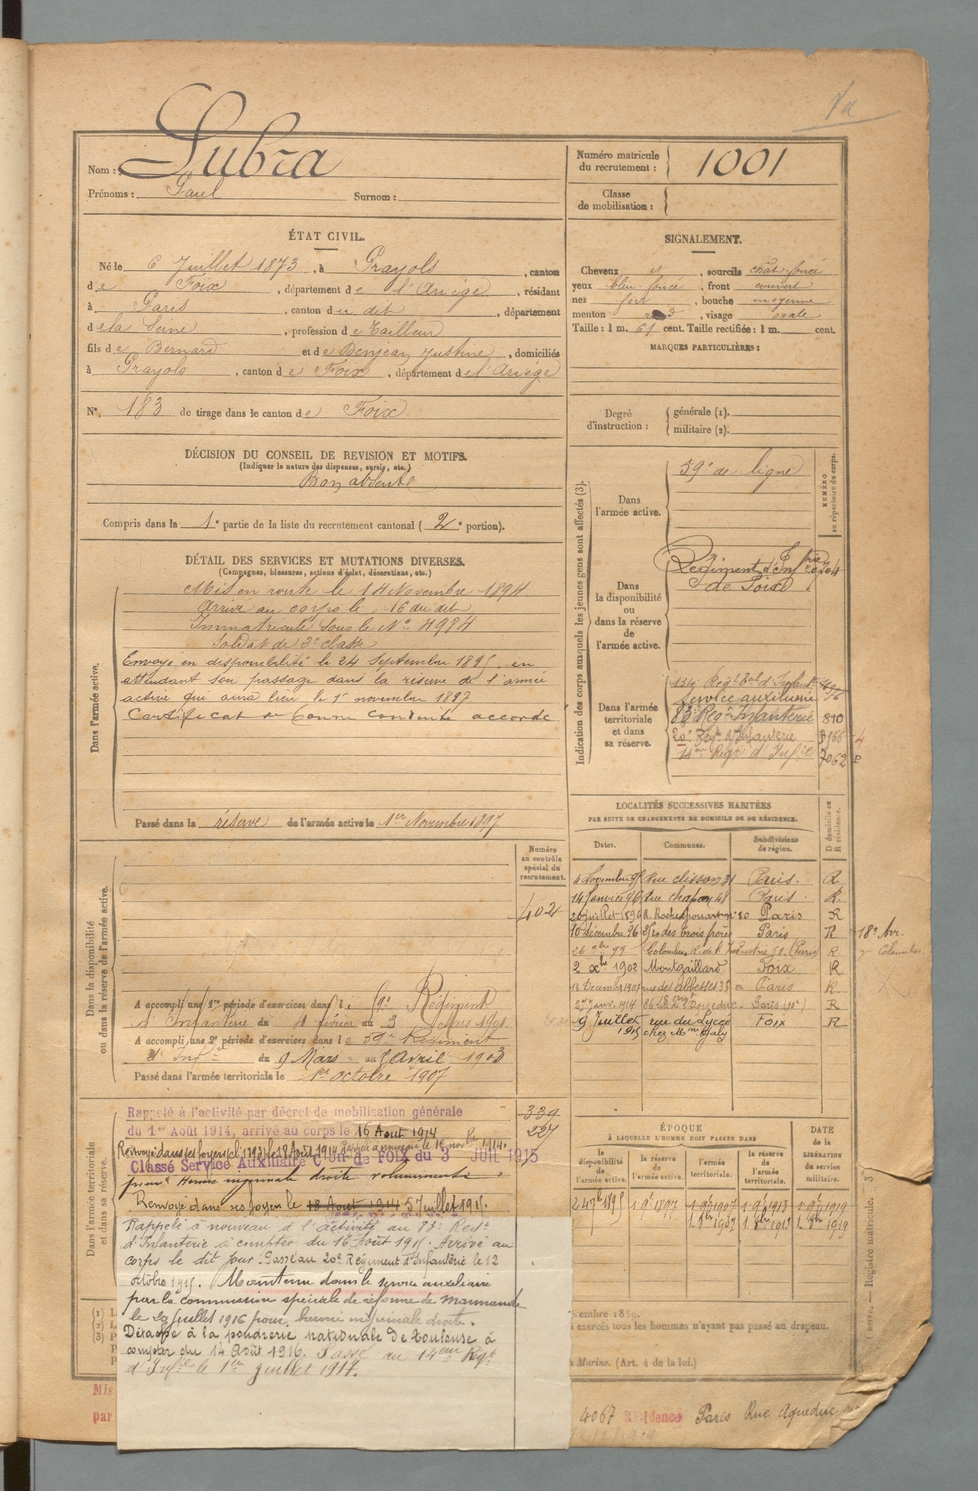 Nom : Lubra
Prénoms : Paul Surnom :
Numéro matricule du recrutement : 1001
Classe de mobilisation :
ÉTAT CIVIL.
Né le 6 Juillet 1873, à Prayols, canton
de Foix, département de l'Ariège, résidant
à Paris, canton du dit, département
de la Seine, profession de Tailleur
fils de Bernard et de Benjean Justine, domiciliés
à Prayols, canton de Foix, département de l'Ariège
N° 183 de tirage dans le canton de Foix
SIGNALEMENT.
Cheveux et, sourcils chat. foncé
yeux bleu foncé, front couvert
nez fort, bouche moyenne
menton rond, visage ovale
Taille : 1 m. 61 cent. Taille rectifiée : 1 m. cent.
MARQUES PARTICULIÈRES :
Degré d'instruction : générale (1).
militaire (2).
DÉCISION DU CONSEIL DE REVISION ET MOTIFS.
(Indiquer la nature des dispenses, sursis, etc.)
Bon absent
Compris dans la 1e partie de la liste du recrutement cantonal (2e portion).
DÉTAIL DES SERVICES ET MUTATIONS DIVERSES.
(Campagnes, blessures, actions d'éclat, décorations, etc.)
Dans l'armée active.
Mis en route le 14 Novembre 1894
Arrivé au corps le 16 du dit
Immatriculé sous le No 4984
Soldat de 2e classe
Envoyé en disponibilité le 24 Septembre 1895 en
attendant son passage dans la réserve de l'armée
active qui aura lieu le 1r novembre 1897
Certificat de bonne conduite accordé
Passé dans la réserve de l'armée active le 1er Novembre 1897
Indication des corps auxquels les jeunes gens sont affectés (3).
NUMÉRO au répertoire du corps.
Dans l'armée active.
39e de ligne
Dans la disponibilité ou dans la réserve de l'armée active.
Régiment d'Infrie
de Foix
Dans l'armée territoriale et dans sa réserve.
134 Regt Tal d'Infant
Service auxiliaire
83e Regt Infanterie 810
20e Regt d'Infanterie
14me Regt d'Infie 7062
LOCALITÉS SUCCESSIVES HABITÉES
PAR SUITE DE CHANGEMENTS DE DOMICILE OU DE RÉSIDENCE.
Dates. Communes. Subdivisions de région. D domicile ou R résidence.
4 Novembre 95 Rue clisson 31 Paris. R.
14 Janvier 96 Rue chapon 48 Paris. R.
20 juillet 1896 R. Rochechouart no 80 Paris R
10 décembre 96 des trois frères Paris R 18e Arr.
26 9bre 99 Colombes R. de l'Industrie 51. (Paris) R Colombes
2 xbre 1902 Montgaillard Foix R
12 Decembre 1907 rue des abbesses 38 Paris R
27 janv. 1914 86 Rue de l'aqueduc Paris (10e) R
9 Juillet 1915 rue du Lycée chez Mme Galy Foix R
Dans la disponibilité ou dans la réserve de l'armée active.
Numéro au contrôle spécial du recrutement.
402
A accompli une 1re période d'exercices dans le 59e Régiment
d'Infanterie du 4 février au 3 Mars 1901
A accompli une 2e période d'exercices dans le 59e Régiment
d'Infie du 9 Mars au 5 Avril 1903
Passé dans l'armée territoriale le 1er octobre 1907
Dans l'armée territoriale et dans sa réserve.
339
227
Rappelé à l'activité par décret de mobilisation générale
du 1er Août 1914, arrivé au corps le 16 Aout 1914
Renvoyé dans ses foyers le 18 Août 1914
Classé Service Auxiliaire Con de FOIX du 3 JUIL 1915
pour hernie inguinale droite volumineuse
Renvoyé dans ses foyers le 18 Aout 1914 5 juillet 1915.
Rappelé à nouveau à l'activité au 83e Regt
d'Infanterie à compter du 16 Août 1915. Arrivé au
corps le dit jour. Passé au 20e Régiment d'Infanterie le 12
octobre 1915. Maintenu dans le service auxiliaire
par la commission spéciale de réforme de Marmande
le 20 juillet 1916 pour hernie inguinale droite.
Détaché à la poudrerie nationale de Toulouse à
compter du 14 Août 1916. Passé au 14eme Regt
d'Infie le 1er Juillet 1917.
ÉPOQUE
À LAQUELLE L'HOMME DOIT PASSER DANS
la disponibilité de l'armée active. la réserve de l'armée active. l'armée territoriale. la réserve de l'armée territoriale.
DATE de la LIBÉRATION du service militaire.
24 7bre 1895 1 9bre 1897 1 9bre 1907 1 9bre 1913 1 9bre 1919
1. 8bre 1907 1 8bre 1913 1. 8bre 1919
(1)
(2)
(3)
exercés tous les hommes n'ayant pas passé au drapeau.
Marine. (Art. 4 de la loi.)
Registre matricule.
Mis
par
4067 Résidence Paris Rue Aqueduc